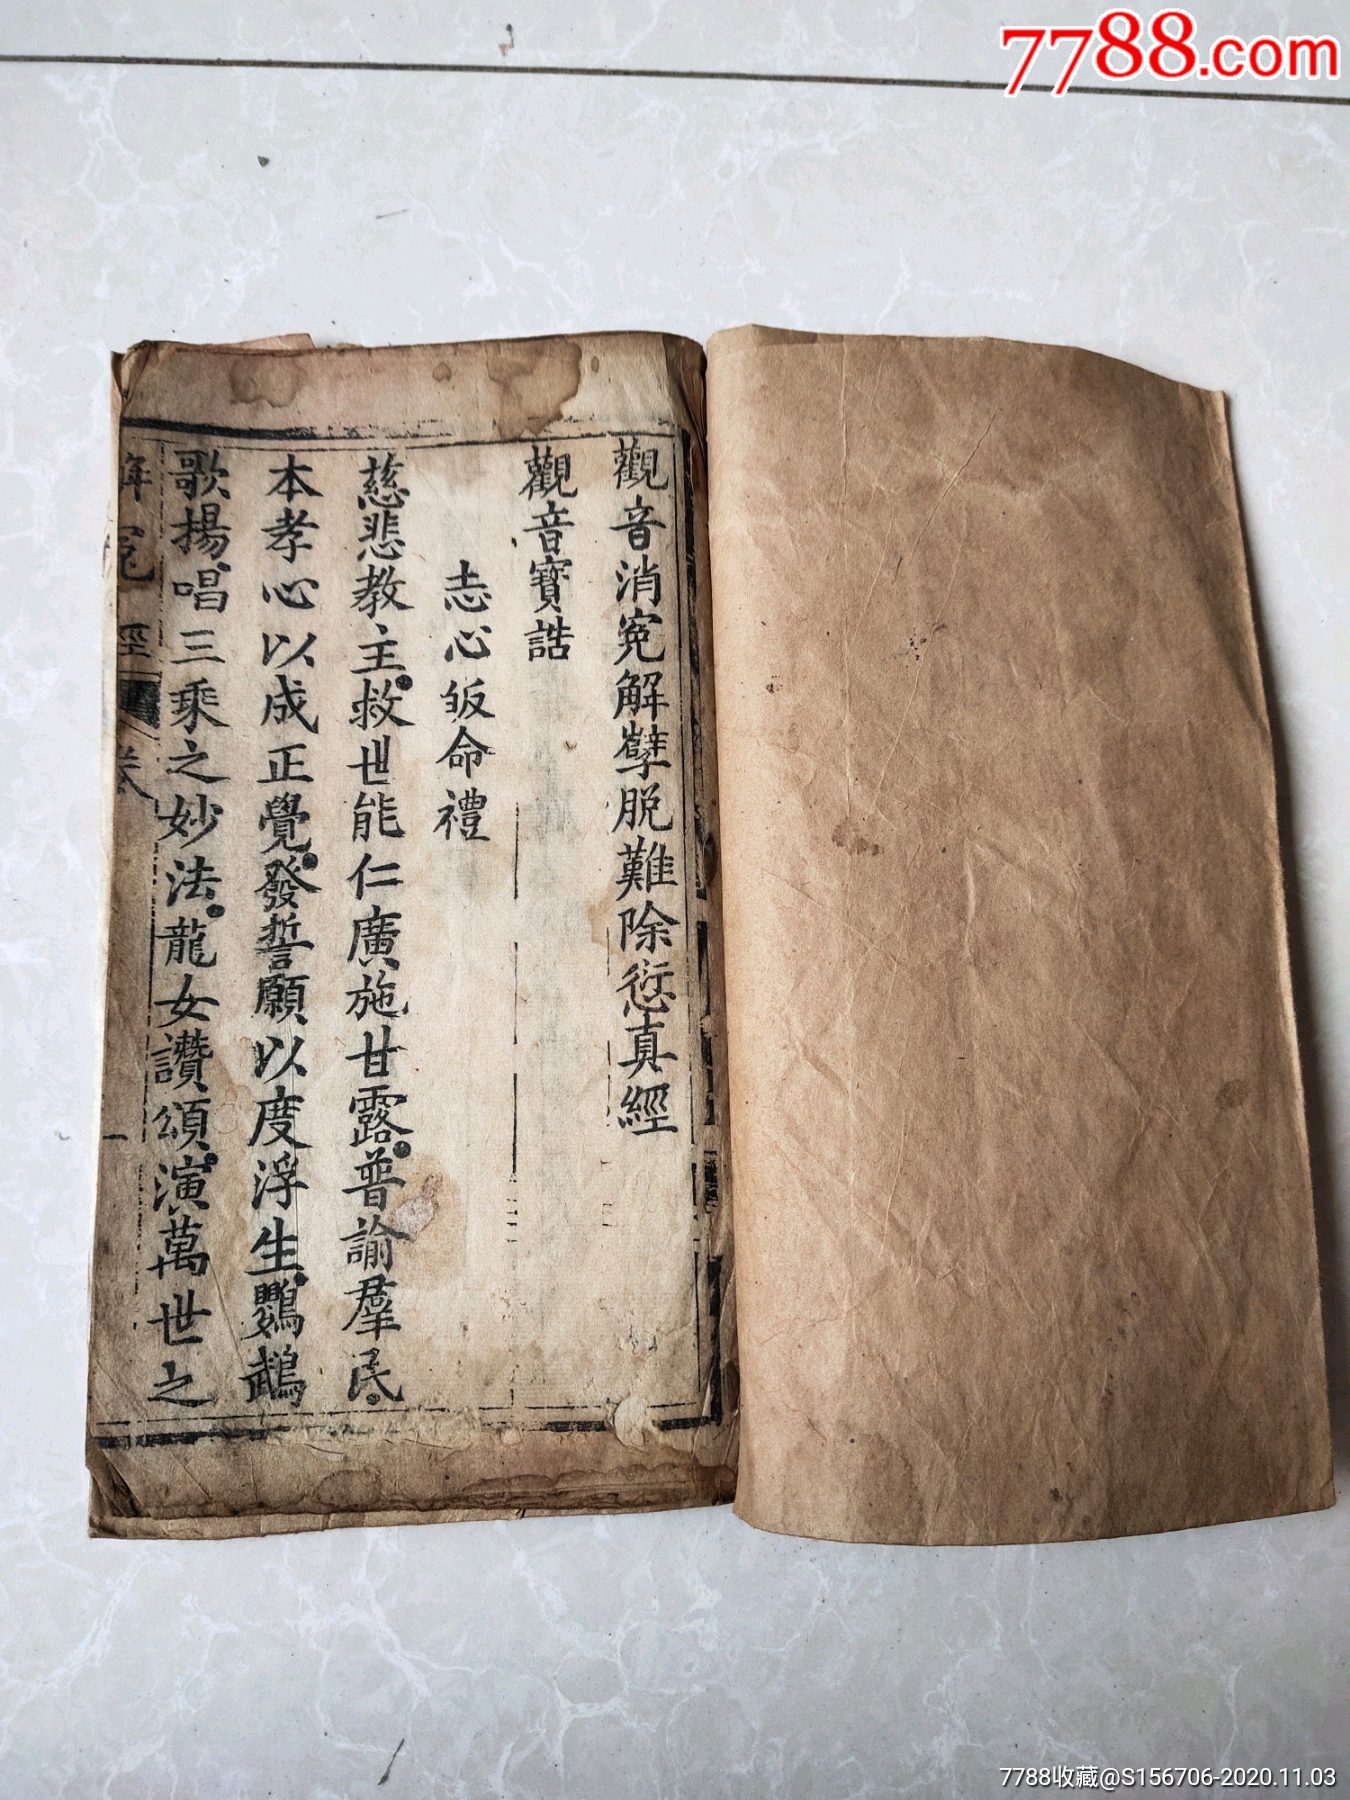 7788.com
觀音消冤解孽脫難除愆真經
觀音寶誥
志心皈命禮
慈悲教主救世能仁廣施甘露普諭羣民
本孝心以成正覺發誓願以度浮生鸚鵡
歌揚唱三乘之妙法龍女讚頌演萬世之
解冤 經 卷 一
7788收藏@S156706-2020.11.03